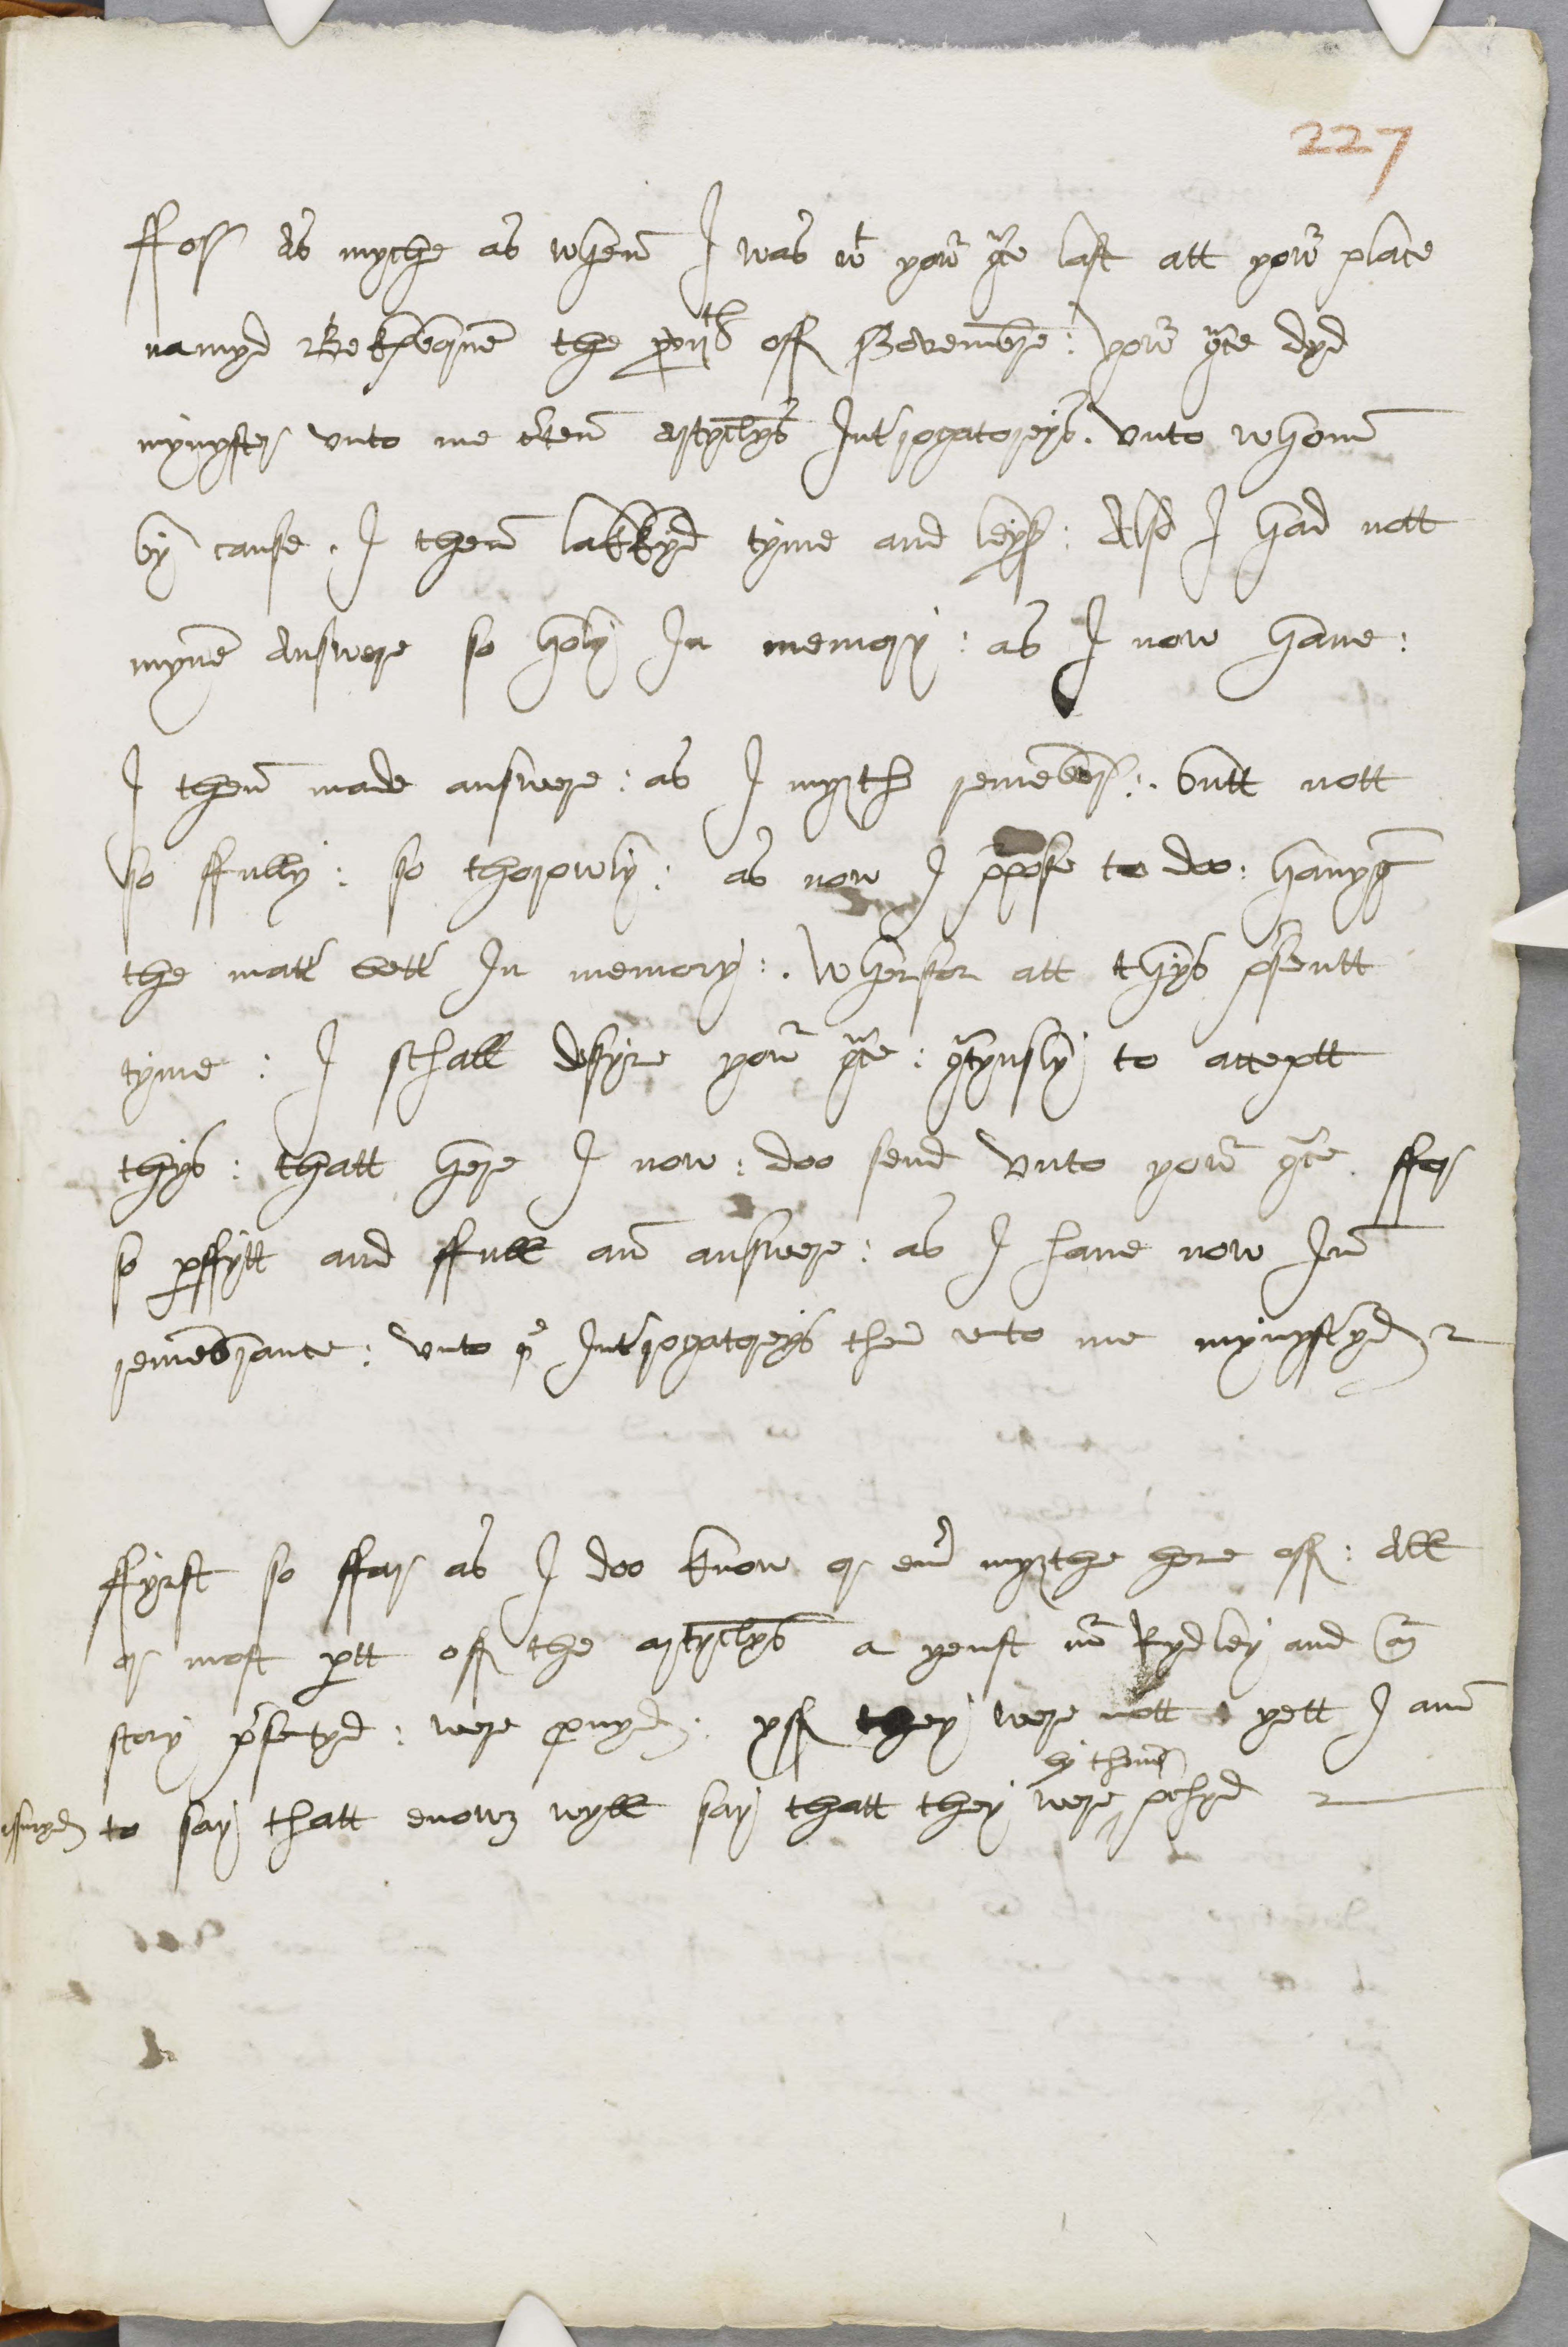 227
ffor As myche as when I was wt yowr gce last att yowr place
namyd Bekysborne the xviith off Novembre: yowr gce dyd
mynyster vnto me cten artyclys Introgatoreys. vnto whom
by cause. I then lakkyd tyme and leys: Also I had nott
myne Answere so holy In memory: as I now haue:
I then made answere: as I mygth remebr: butt nott
so ffully: so thorowly: as now I ppose to doo: hauyg
the matt bett In memory: wherfor att thys psentt
tyme: I schall desyre yowr gce: gcyusly to acceptt
thys: thatt here I now: doo send vnto yowr gce ffor
so pffytt and ffull an answere: as I haue now In
remebrance: vnto ye Introgatoreys then vnto me mynystyd
ffyrst so ffar as I doo know or eu mygthe here off: All
or most ptt off the artyclys a yenst mr Rydley and
scory psentyd: were puyd: yff they were nott yett I am
by them
assuryd to say thatt enowg wyll say thatt they were pchyd